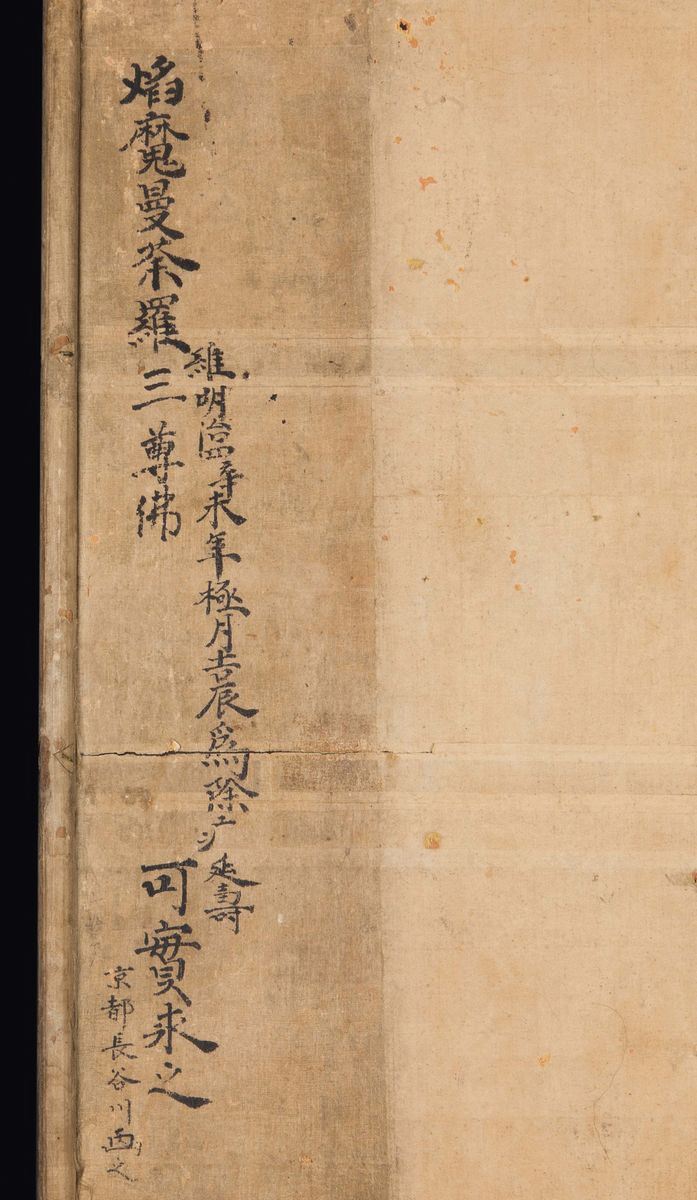 維明治四辛未年極月吉辰爲除疒延壽
焰魔曼荼羅三尊佛 可實求之
京都長谷川